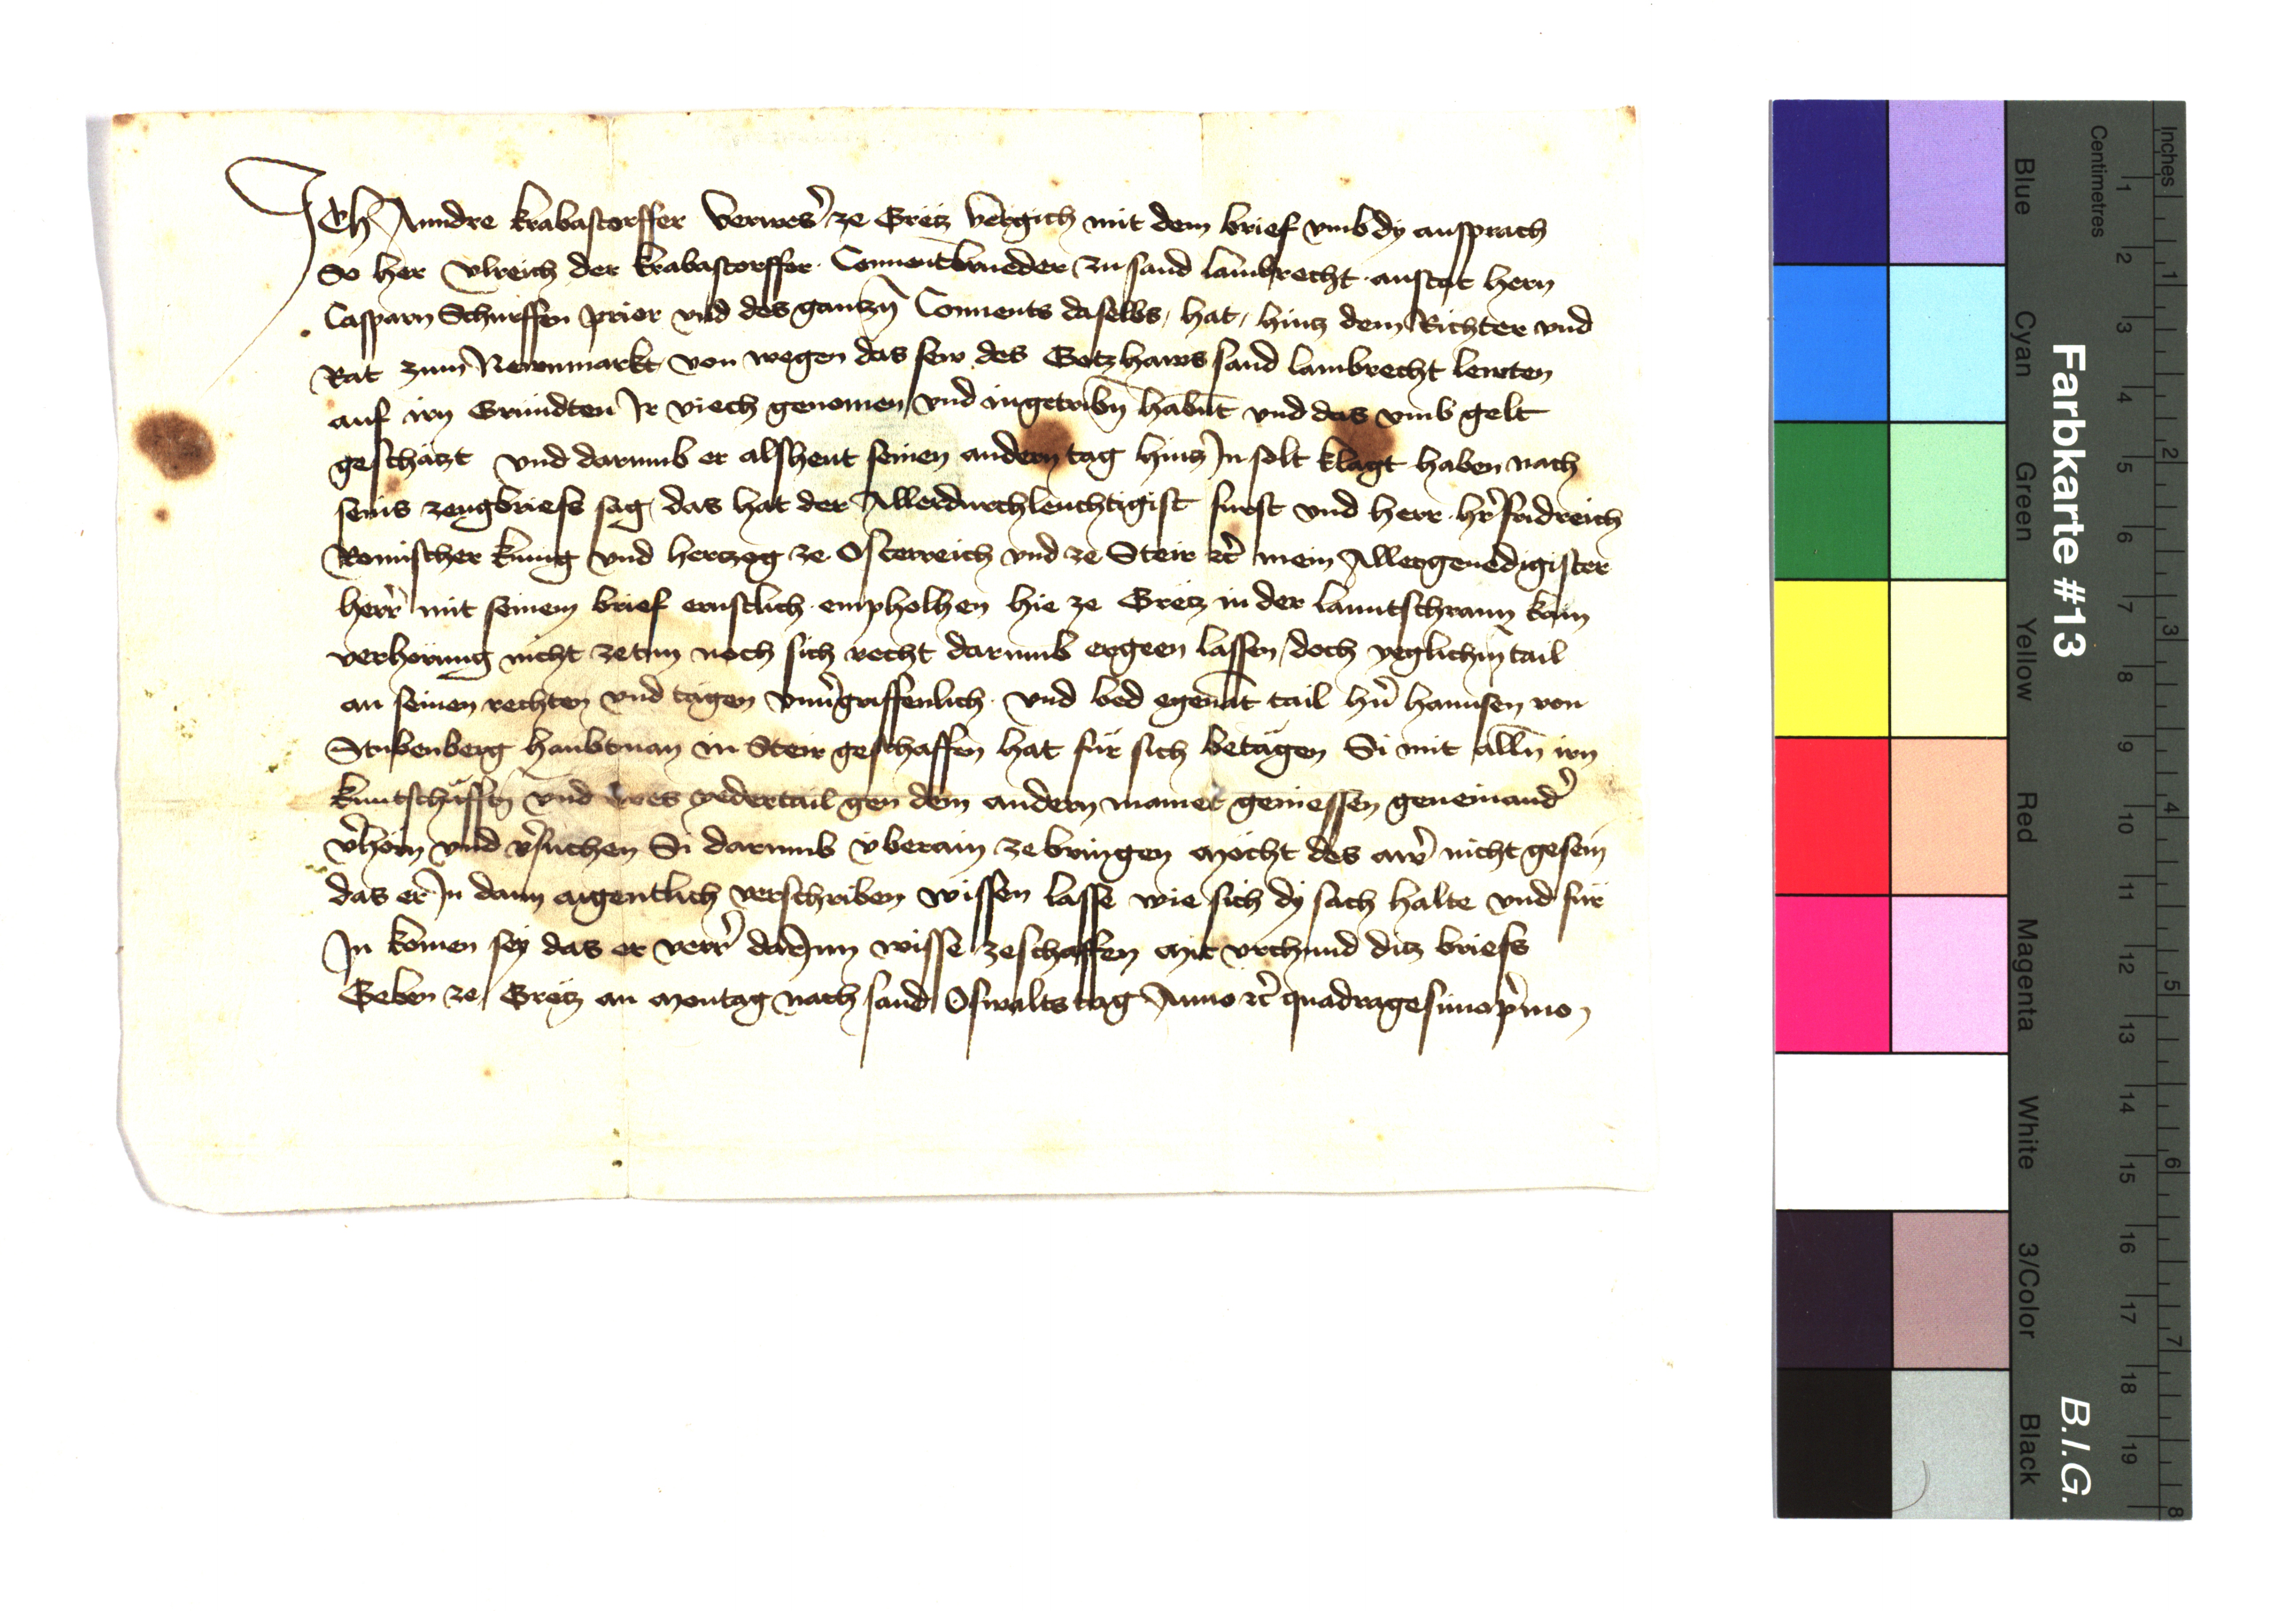 Ich Anndre Krabastorffer Verweser̉ ze Gretz vergich mit dem brief vmb dy ansprach
So her Vlreich der Krabastorffer Conuentbrueder zu sand Lambrecht anstat hern
Casparn Schurffen prior vnd des gantzn̄ Conuents daselbs, hat, hintz dem Richter vnd
Rat zum Newnmarkt von wegen das sew des Gotzhaws sand Lambrecht lewten
auf irn Gründten Jr viech genomen vnd ingetribn̄ habnt vnd das vmb gelt
geschätzt vnd darumb er alsheut seinen andern tag hintz Jn solt klagt haben nach
seins zeugbriefs sag, das hat der Allerdurchleuchtigist fürst vnd herr hr̉ fridreich
Romischer kunig vnd hertzog ze Osterreich vnd ze Steir ꝛc̉ mein Allergenedigister
herr̉ mit seinem brief ernstlich empholhen hie ze Gretz in der lanntschrann kain
verhörung nicht zetun noch sich recht darumb ergeen lassen, doch yeglichm̄ tail
an seinen rechten vnd tägen vnủgriffenlich vnd bed egenāt tail hn̉ hannsen von
Stubenberg haubtman in Steir geschaffen hat für sich betägen Si mit alln̄ irn
kuntschäfftn̄ vnd wes yedertail gen dem andern mainet geniessen geneinand̉
v̉hörn vnd v̉suchen Si darumb vberain ze bringen möcht des aw̉ nicht gesein
das er Jn dann aigentlich verschriben wissen lasse wie sich dy sach halte vnd für
Jn komen sey das er verr̉ darJnn wisse zeschaffen mit vrchund ditz briefs
Geben ze Gretz an montag nach sand Oswalts tag Anno ꝛc̉ quadragesimop̉mo
Farbkarte #13
B.I.G.
Centimetres
Inches
1 2 3 4 5 6 7 8 9 10 11 12 13 14 15 16 17 18 19
1 2 3 4 5 6 7 8
Blue
Cyan
Green
Yellow
Red
Magenta
White
3/Color
Black